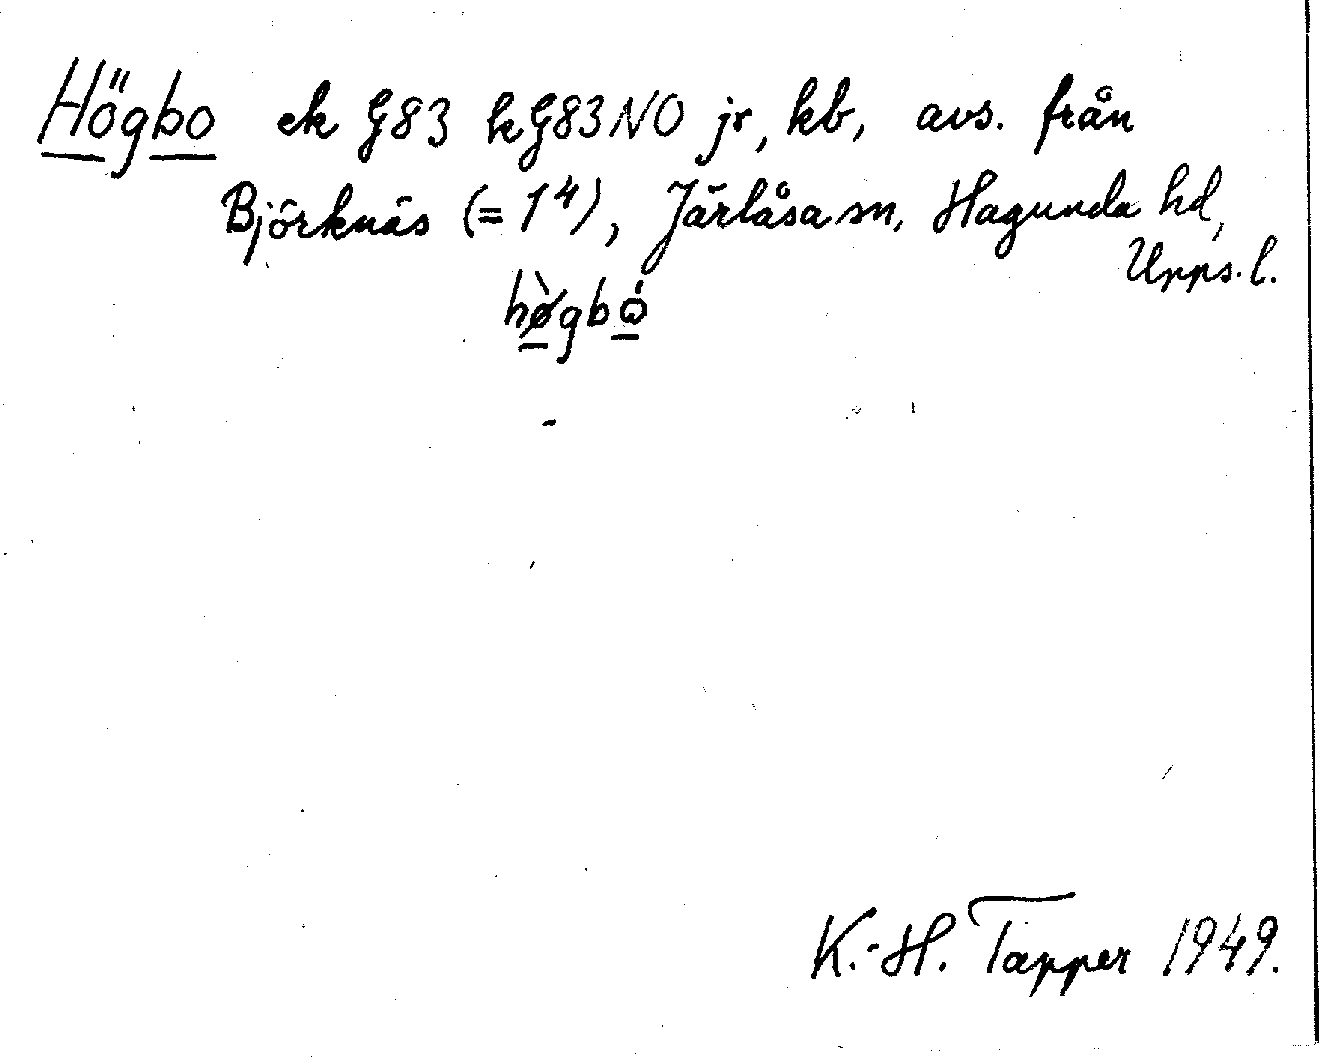 Högbo ek G83 kG83NO jr, kb, avs. från
Björknäs (=1⁴), Järlåsa sn, Hagunda hd,
Upps. l.
hø̀gbó
K.-H. Tapper 1949.